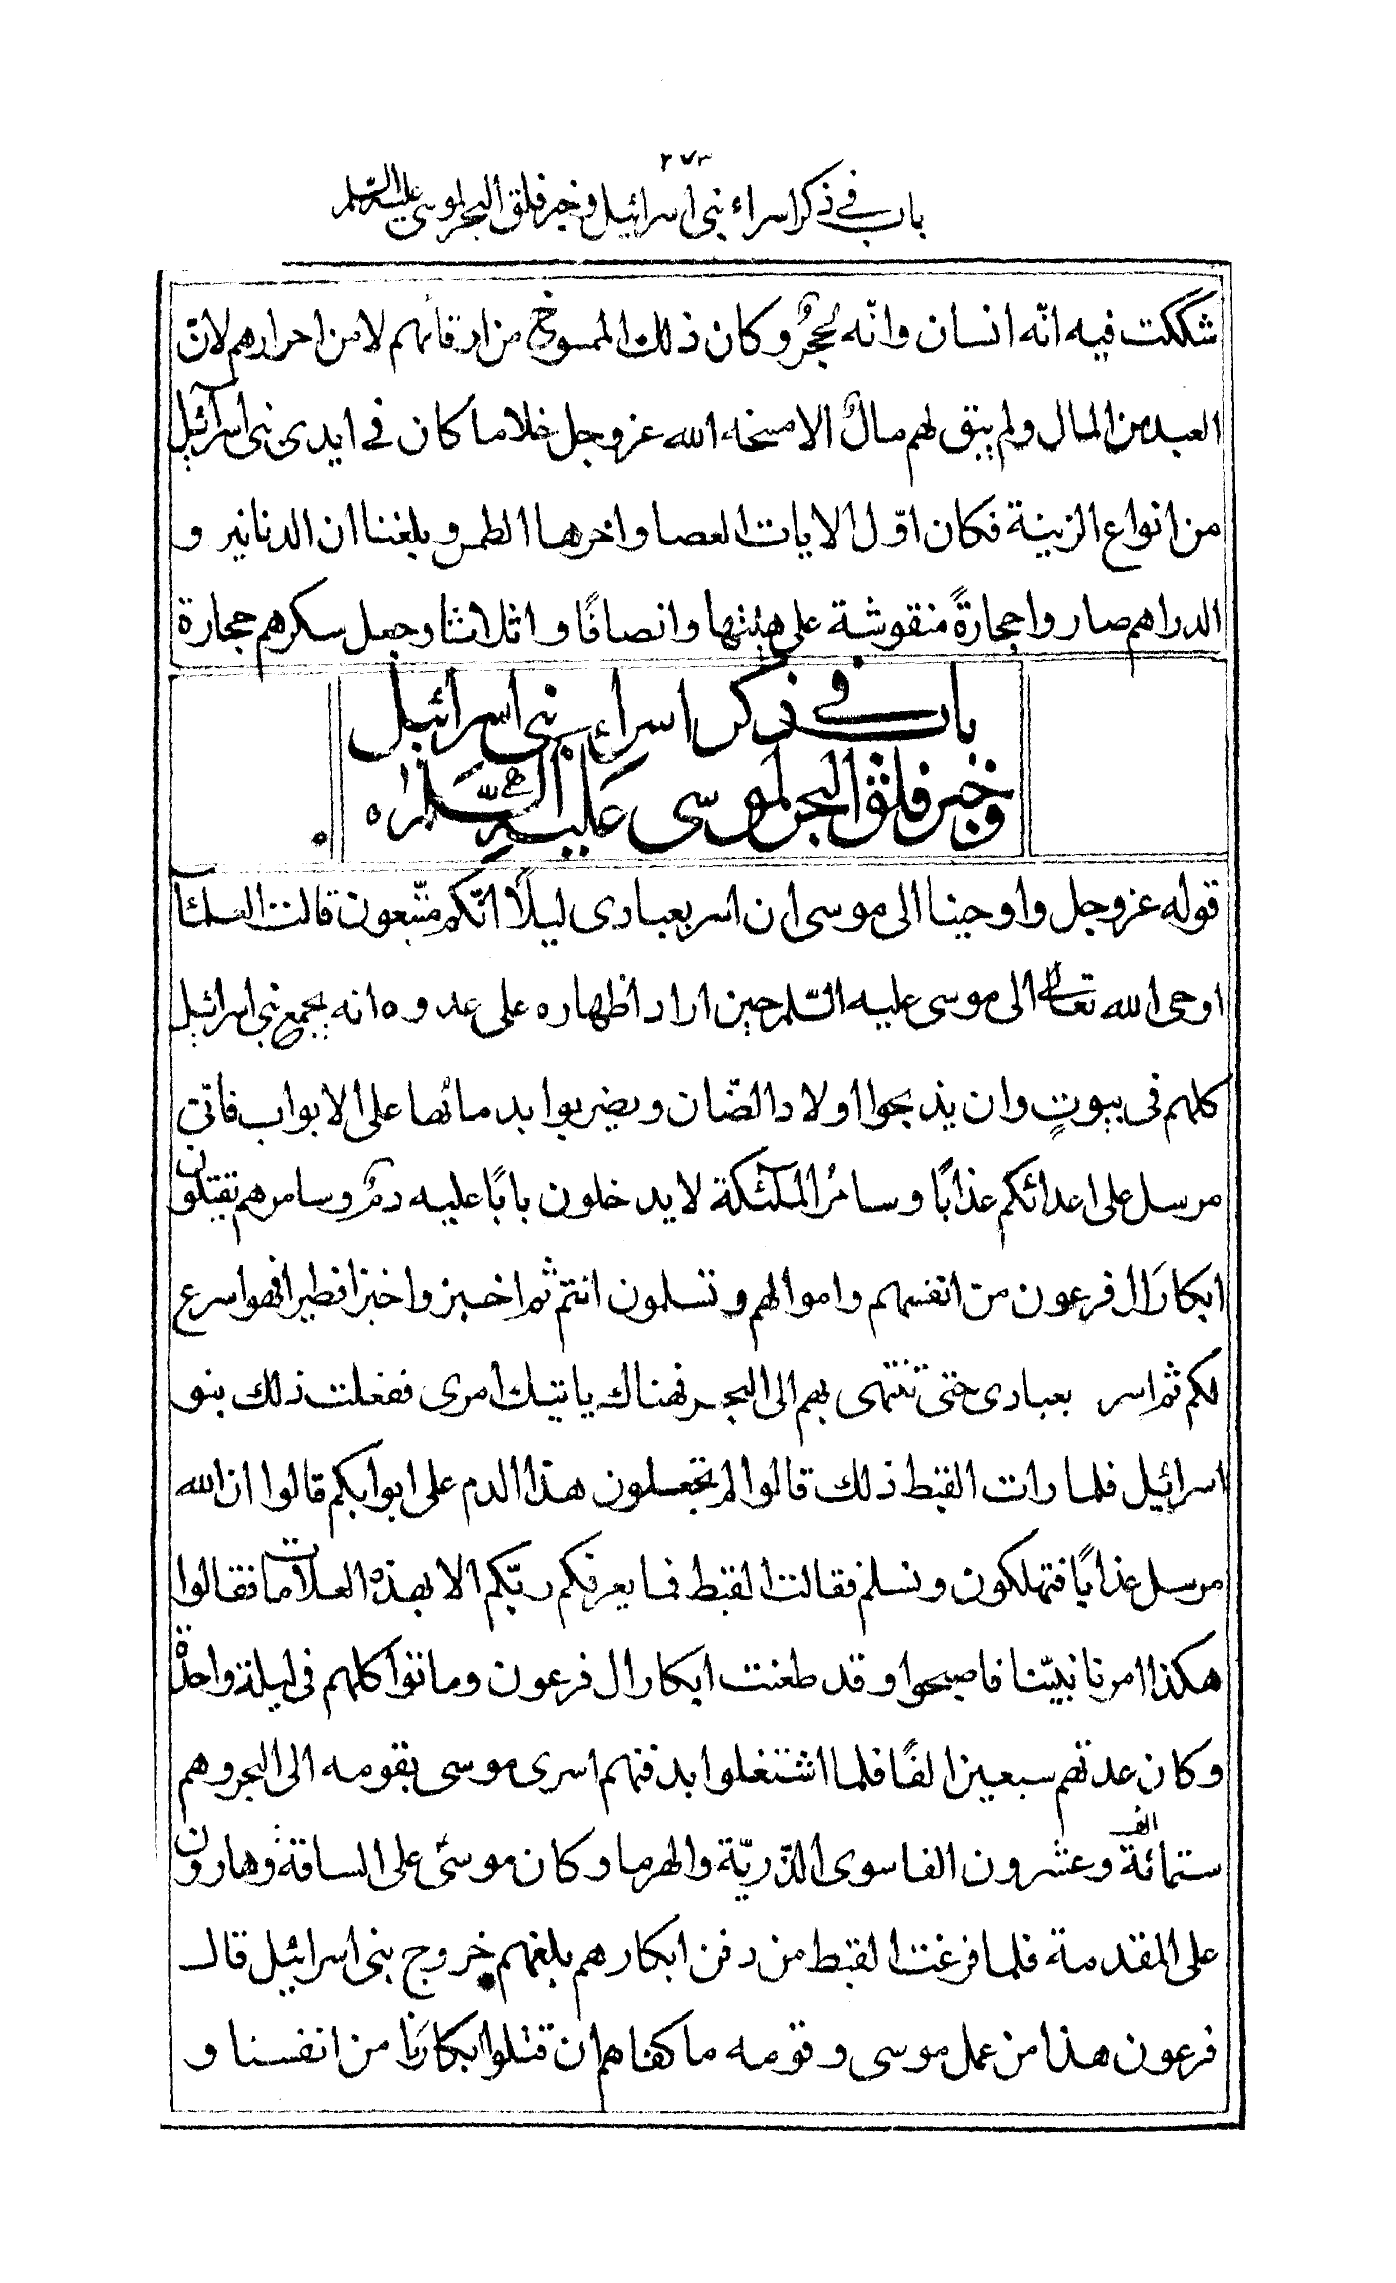 ٢٧٣
باب في ذكر اسراء بنى اسرائيل وخبر فلق البحر لموسى عليه السلم
شككت فيه انّه انسان وانّه لحجرٌ وكان ذلك الممسوخ من ارقائهم لا من احرارهم لانّ
العبد من المال ولم يبق لهم مالٌ الا مسخه الله عز وجل خلا ما كان في ايدى بنى اسرآئيل
من انواع الزينة فكان اوّل الايات العصا واخرها الطمس وبلغنا ان الدنانير و
الدراهم صاروا حجارةً منقوشة على هيئتها وانصافًا واثلاثا وجعل سكرهم حجارة
باب في ذكر اسراء بنى اسرائيل
وخبر فلق البحر لموسى عليه السّلم
قوله عز وجل واوحينا الى موسى ان اسر بعبادى ليلًا انّكم متّبعون قالت العلمآ
اوحى الله تعالى الى موسى عليه السّلم حين اراد اظهاره على عدوه انه يجمع بنى اسرائيل
كلهم فى بيوتٍ وان يذبحوا اولاد الضّان ويضربوا بدمائها على الابواب فانّى
مرسل على اعدائكم عذابًا وسامرُ الملآئكة لا يدخلون بابًا عليه دمٌ وسامرهم يقتلون
ابكارَ ال فرعون من انفسهم واموالهم وتسلمون انتم ثم اخبز واخبزا فطيرا فهو اسرع
لكم ثم اسر بعبادى حتى تنتهى بهم الى البحر فهناك ياتيك امرى ففعلت ذلك بنو
اسرائيل فلما رات القبط ذلك قالوا لم تجعلون هذا الدم على ابوابكم قالوا ان الله
مرسل عذابًا فتهلكون ونسلم فقالت القبط فما يعرفكم ربّكم الا بهذه العلامات فقالوا
هكذا امرنا نبيّنا فاصبحوا وقد طعنت ابكار ال فرعون وماتوا كلهم فى ليلة واحدة
وكان عدتهم سبعين الفًا فلما اشتغلوا بدفنهم اسرى موسى بقومه الى البحر وهم
ستمائة الف وعشرون الفا سوى الذّريّة والهرما وكان موسى على الساقة وهارون
على المقدمة فلما فرغت القبط من دفن ابكارهم بلغهم خروج بنى اسرائيل قال
فرعون هذا من عمل موسى وقومه ما كفاهم ان قتلوا ابكارَنا من انفسنا و